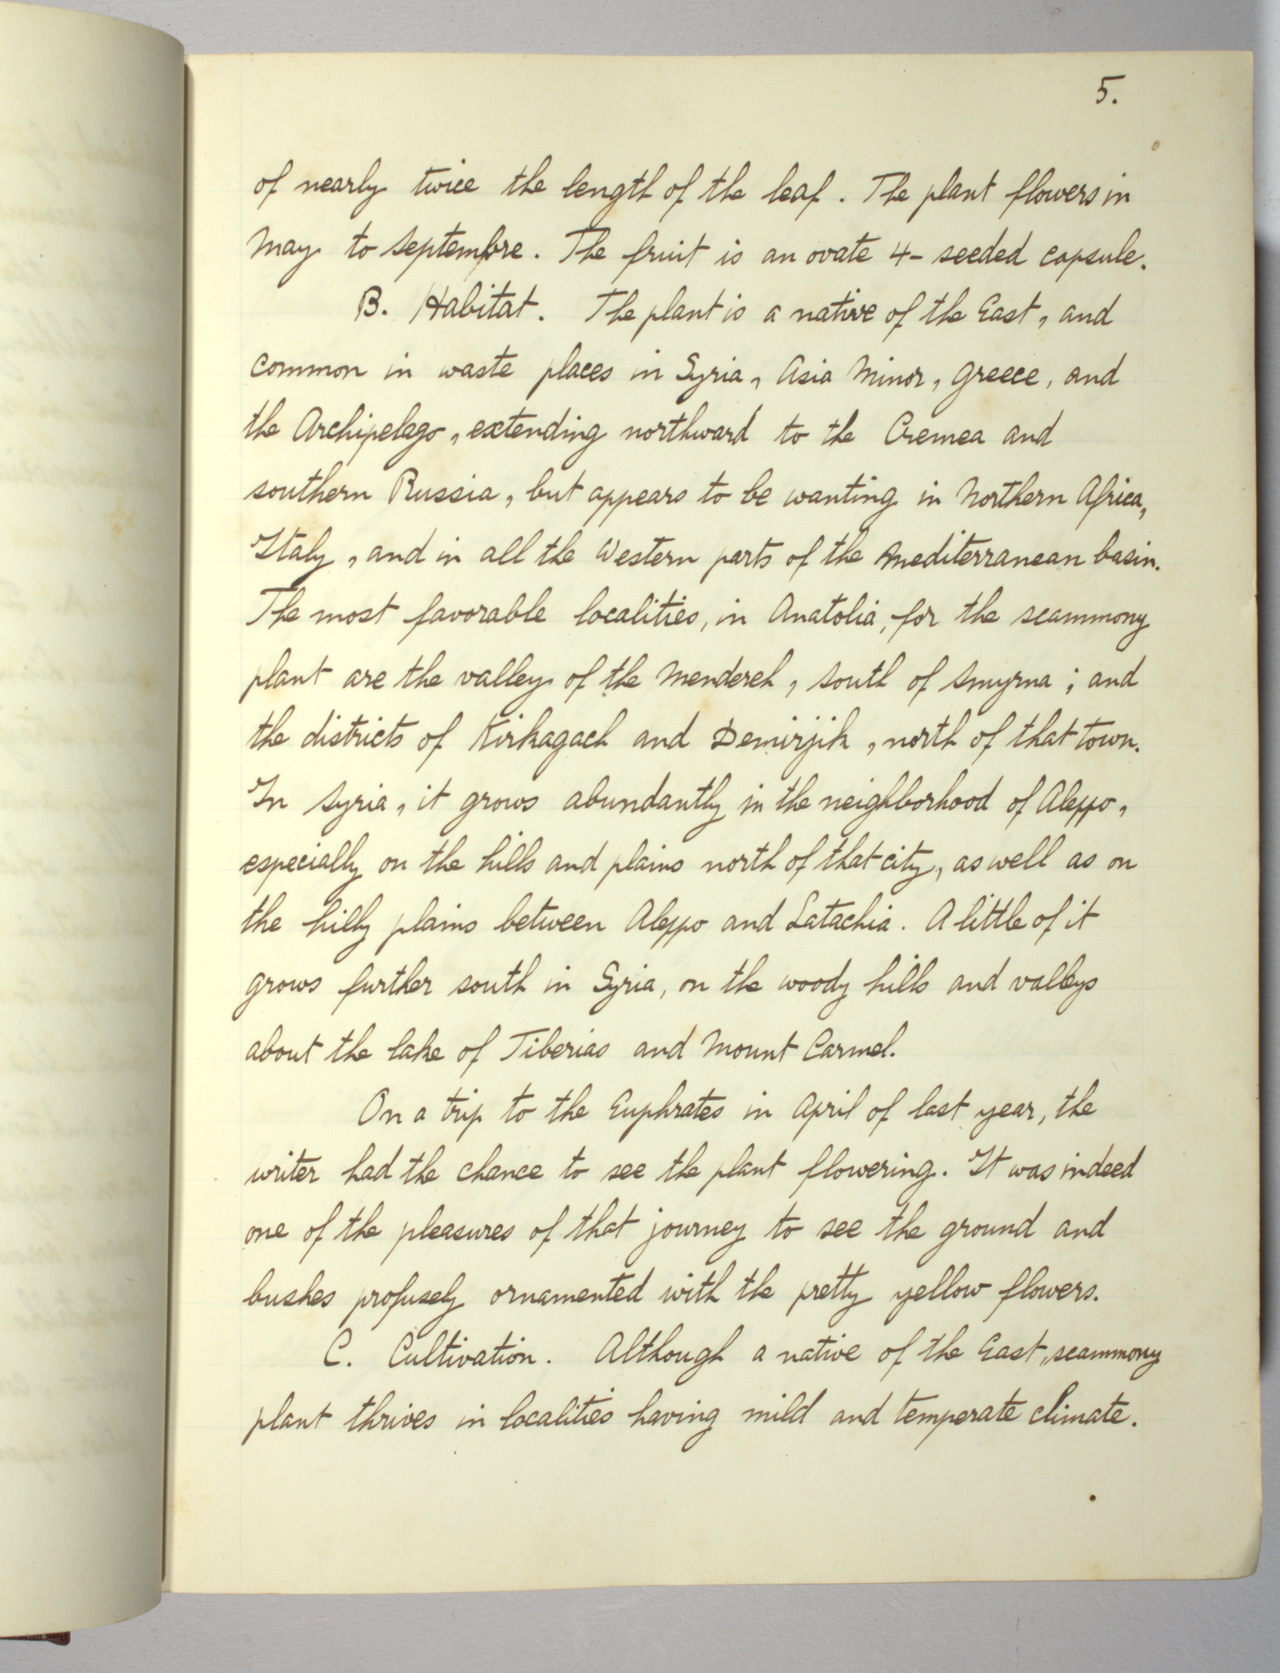 5.
of nearly twice the length of the leaf. The plant flowers in
May to Septembre. The fruit is an ovate 4-seeded capsule.
B. Habitat. The plant is a native of the East, and
common in waste places in Syria, Asia Minor, Greece, and
the Archipelago, extending northward to the Cremea and
southern Russia, but appears to be wanting in Northern Africa,
Italy, and in all the Western parts of the Mediterranean basin.
The most favorable localities, in Anatolia, for the scammony
plant are the valley of the Mendereh, south of Smyrna; and
the districts of Kirkagach and Demirjik, north of that town.
In Syria, it grows abundantly in the neighborhood of Aleppo,
especially on the hills and plains north of that city, as well as on
the hilly plains between Aleppo and Latachia. A little of it
grows further south in Syria, on the woody hills and valleys
about the lake of Tiberias and Mount Carmel.
On a trip to the Euphrates in April of last year, the
writer had the chance to see the plant flowering. It was indeed
one of the pleasures of that journey to see the ground and
bushes profusely ornamented with the pretty yellow flowers.
C. Cultivation. Although a native of the East, scammony
plant thrives in localities having mild and temperate climate.